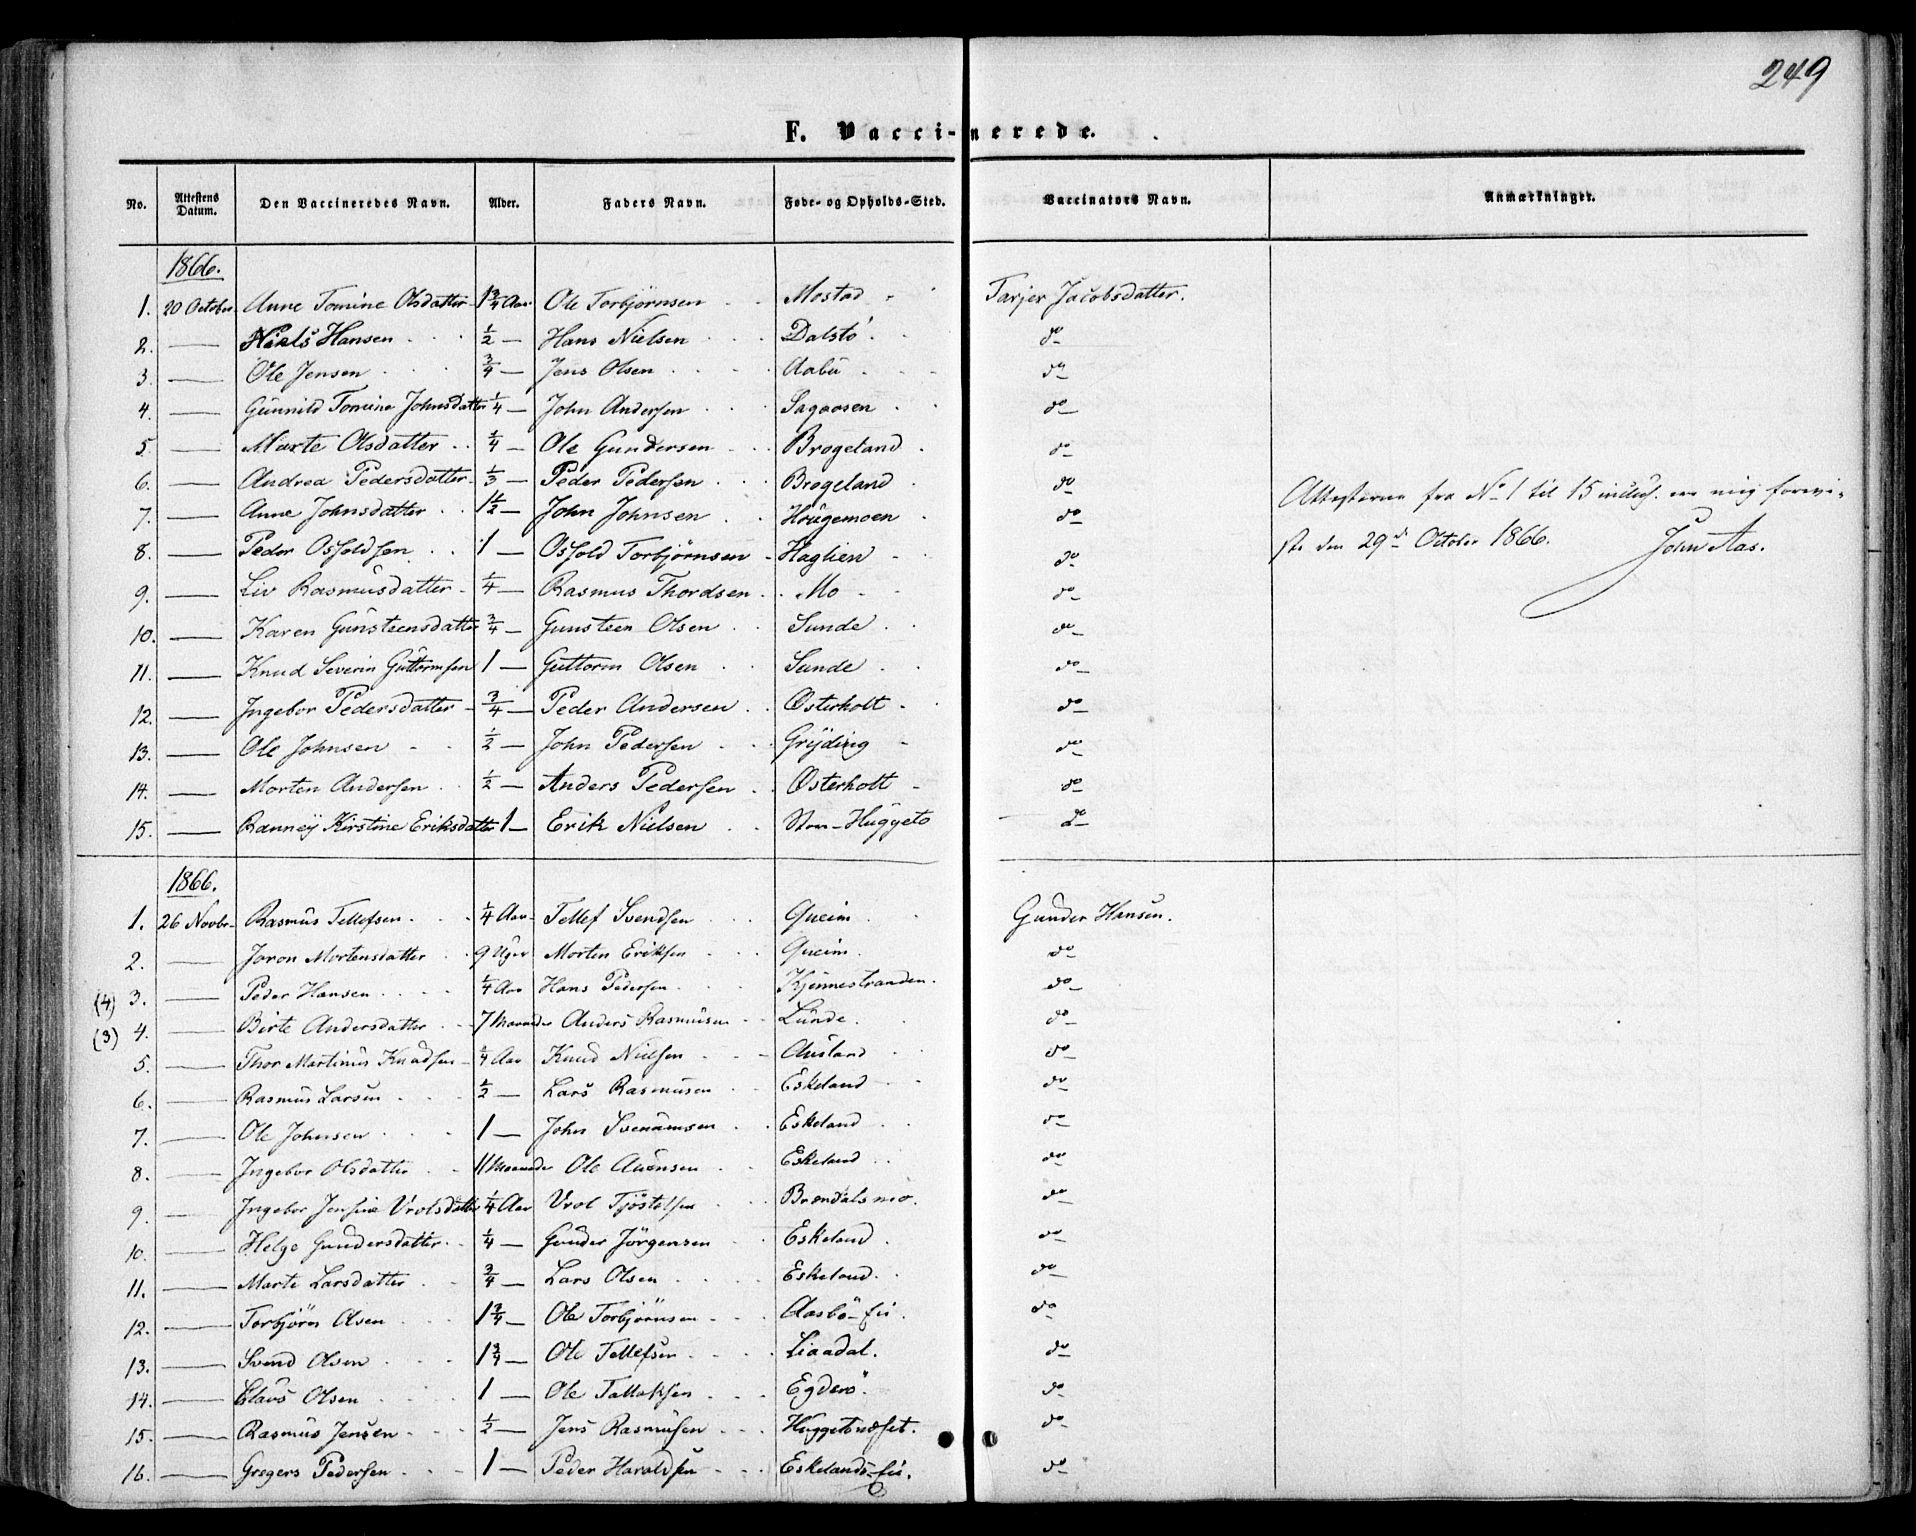 249
F. Vaccinerede.
No. Attestens Datum. Den Vaccineredes Navn. Alder. Faders Navn. Føde- og Opholds-Sted. Vaccinators Navn. Anmærkninger.
1866.
1. 20 October Anne Tomine Olsdatter 1 3/4 Aar Ole Torbjörnsen Mostad Tarjer Jacobsdatter.
2. — Niels Hansen 1/2 — Hans Nielsen Dalstö do
3. — Ole Jensen 3/4 — Jens Olsen Aabü do
4. — Günnild Tomine Johnsdatter 1/4 — John Andersen Sagaasen do
5. — Marte Olsdatter 1/4 — Ole Gundersen Brogeland do
6. — Andrea Pedersdatter 1/3 — Peder Pedersen Brogeland do
7. — Anne Johnsdatter 1 1/2 — John Johnsen Hougemoen do
8. — Peder Osfoldsen 1 — Osfold Torbjørnsen Haglien do
Attesterne fra No 1 til 15 inclus. ere mig forevi-
ste den 29de October 1866. John Aas.
9. — Liv Rasmusdatter 1/4 — Rasmus Thordsen Mo do
10. — Karen Günsteensdatter 3/4 — Gunsteen Olsen Sunde do
11. — Knud Severin Güttormsen 1 — Guttorm Olsen Sunde do
12. — Ingebor Pedersdatter 3/4 — Peder Andersen Østerholt do
13. — Ole Johnsen 1/2 — John Pedersen Gryding do
14. — Morten Andersen 1/2 — Anders Pedersen Østerholt do
15. — Ranneÿ Kirstine Eriksdatter 1 — Erik Nielsen Store-Huggeto do
1866.
1. 26 Novbr Rasmus Tellefsen 1/4 Aar Tellef Svendsen Queim Gunder Hansen.
2. — Joron Mortensdatter 9 Uger Morten Eriksen Queim. do
(4) 3. — Peder Hansen 1/4 Aar Hans Pedersen Kjennestranden. do
(3) 4. — Birte Andersdatter 7 Maaneder Anders Rasmussen Lunde. do
5. — Thor Martinius Knudsen 1/4 Aar Knud Nielsen Ausland do
6. — Rasmus Larsen 1/2 — Lars Rasmusen Eskeland do
7. — Ole Johnsen 1 — John Eskeland do
8. — Ingebor Olsdatter 11 Maaneder Ole Auensen Eskeland do
9. — Ingebor Jensine Vrolsdatter 1/4 Aar Vrol Tjöstelsen Brændalsmo. do
10. — Helge Gundersdatter 1/4 — Gunder Jörgensen Eskeland. do
11. — Marte Larsdatter 3/4 — Lars Olsen Eskeland. do
12. — Torbjörn Olsen 1 3/4 — Ole Torbjörnsen Aasbö-fie. do
13. — Svend Olsen 1 3/4 — Ole Tellefsen Liaadal. do
14. — Claus Olsen 1 — Ole Tallaksen Egderö. do
15. — Rasmus Jensen 1/2 — Jens Rasmusen Huggetonæset. do
16. — Gregers Pedersen 1 — Peder Haroldsen Eskelands-fie. do